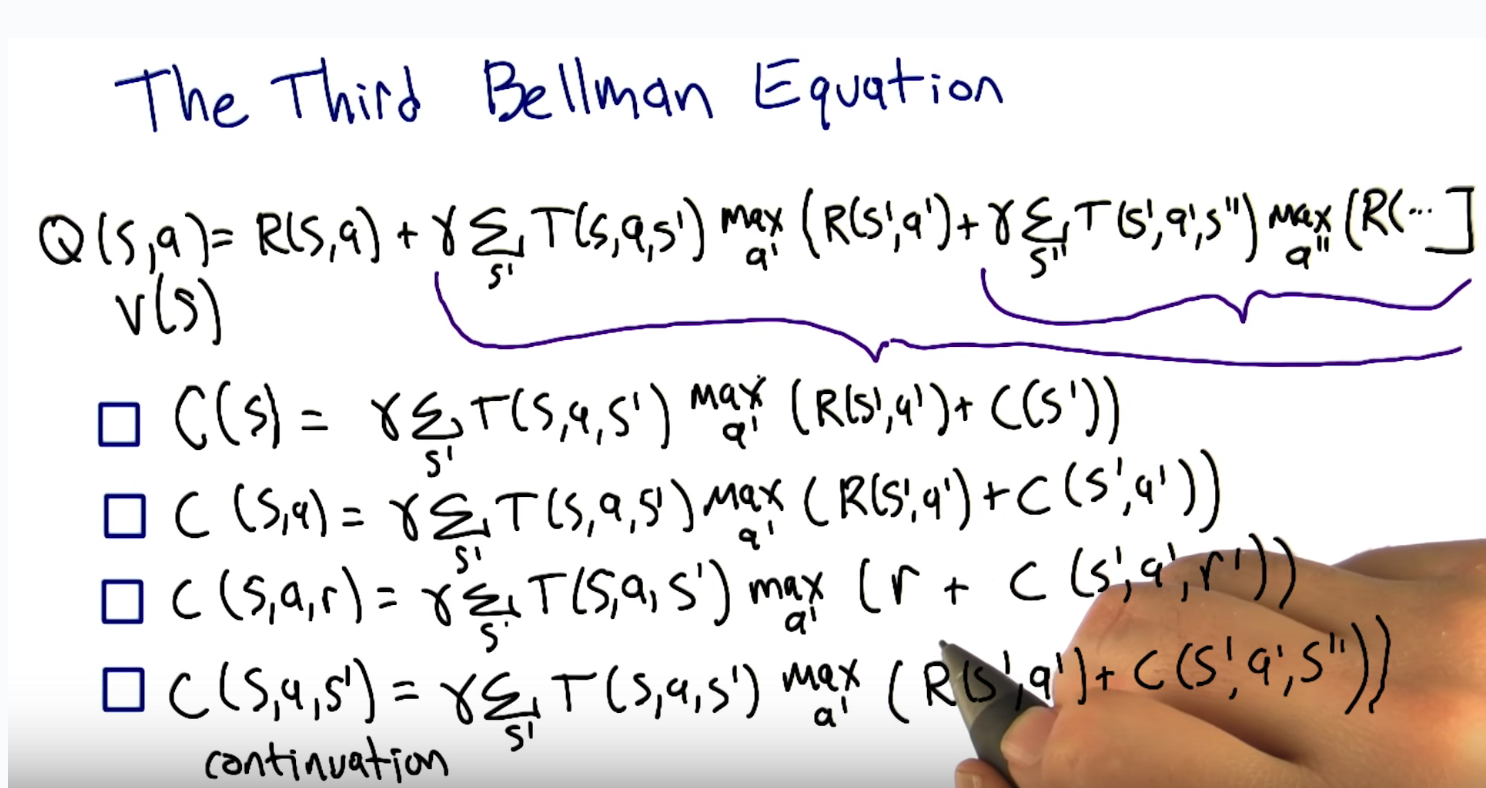 The Third Bellman Equation
Q(s,a)= R(s,a) + γ Σ_s' T(s,a,s') max_a' (R(s',a')+ γ Σ_s'' T(s',a',s'') max_a'' (R(...]
V(s)
C(s) = γ Σ_s' T(s,a,s') max_a' (R(s',a')+ C(s'))
C (s,a) = γ Σ_s' T(s,a,s') max_a' (R(s',a') + C (s',a'))
C (s,a,r) = γ Σ_s' T(s,a,s') max_a' (r + C (s',a',r'))
C(s,a,s') = γ Σ_s' T(s,a,s') max_a' (R(s',a')+ C(s',a',s''))
continuation